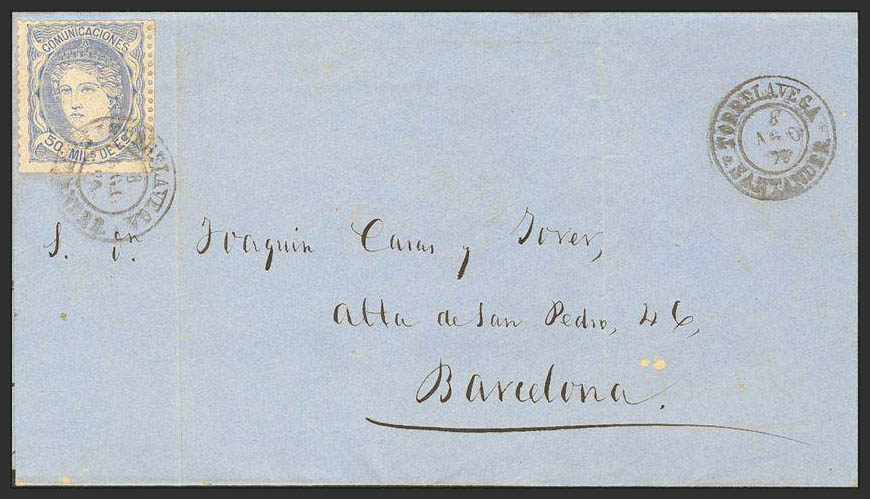 COMUNICACIONES
50. MILS DE ES
TORRELAVEGA
8
AGO
SANTANDER
RELAVEGA
8
ANDER
S. Joaquin Casas y Jover,
Alta de San Pedro, 46,
Barcelona.